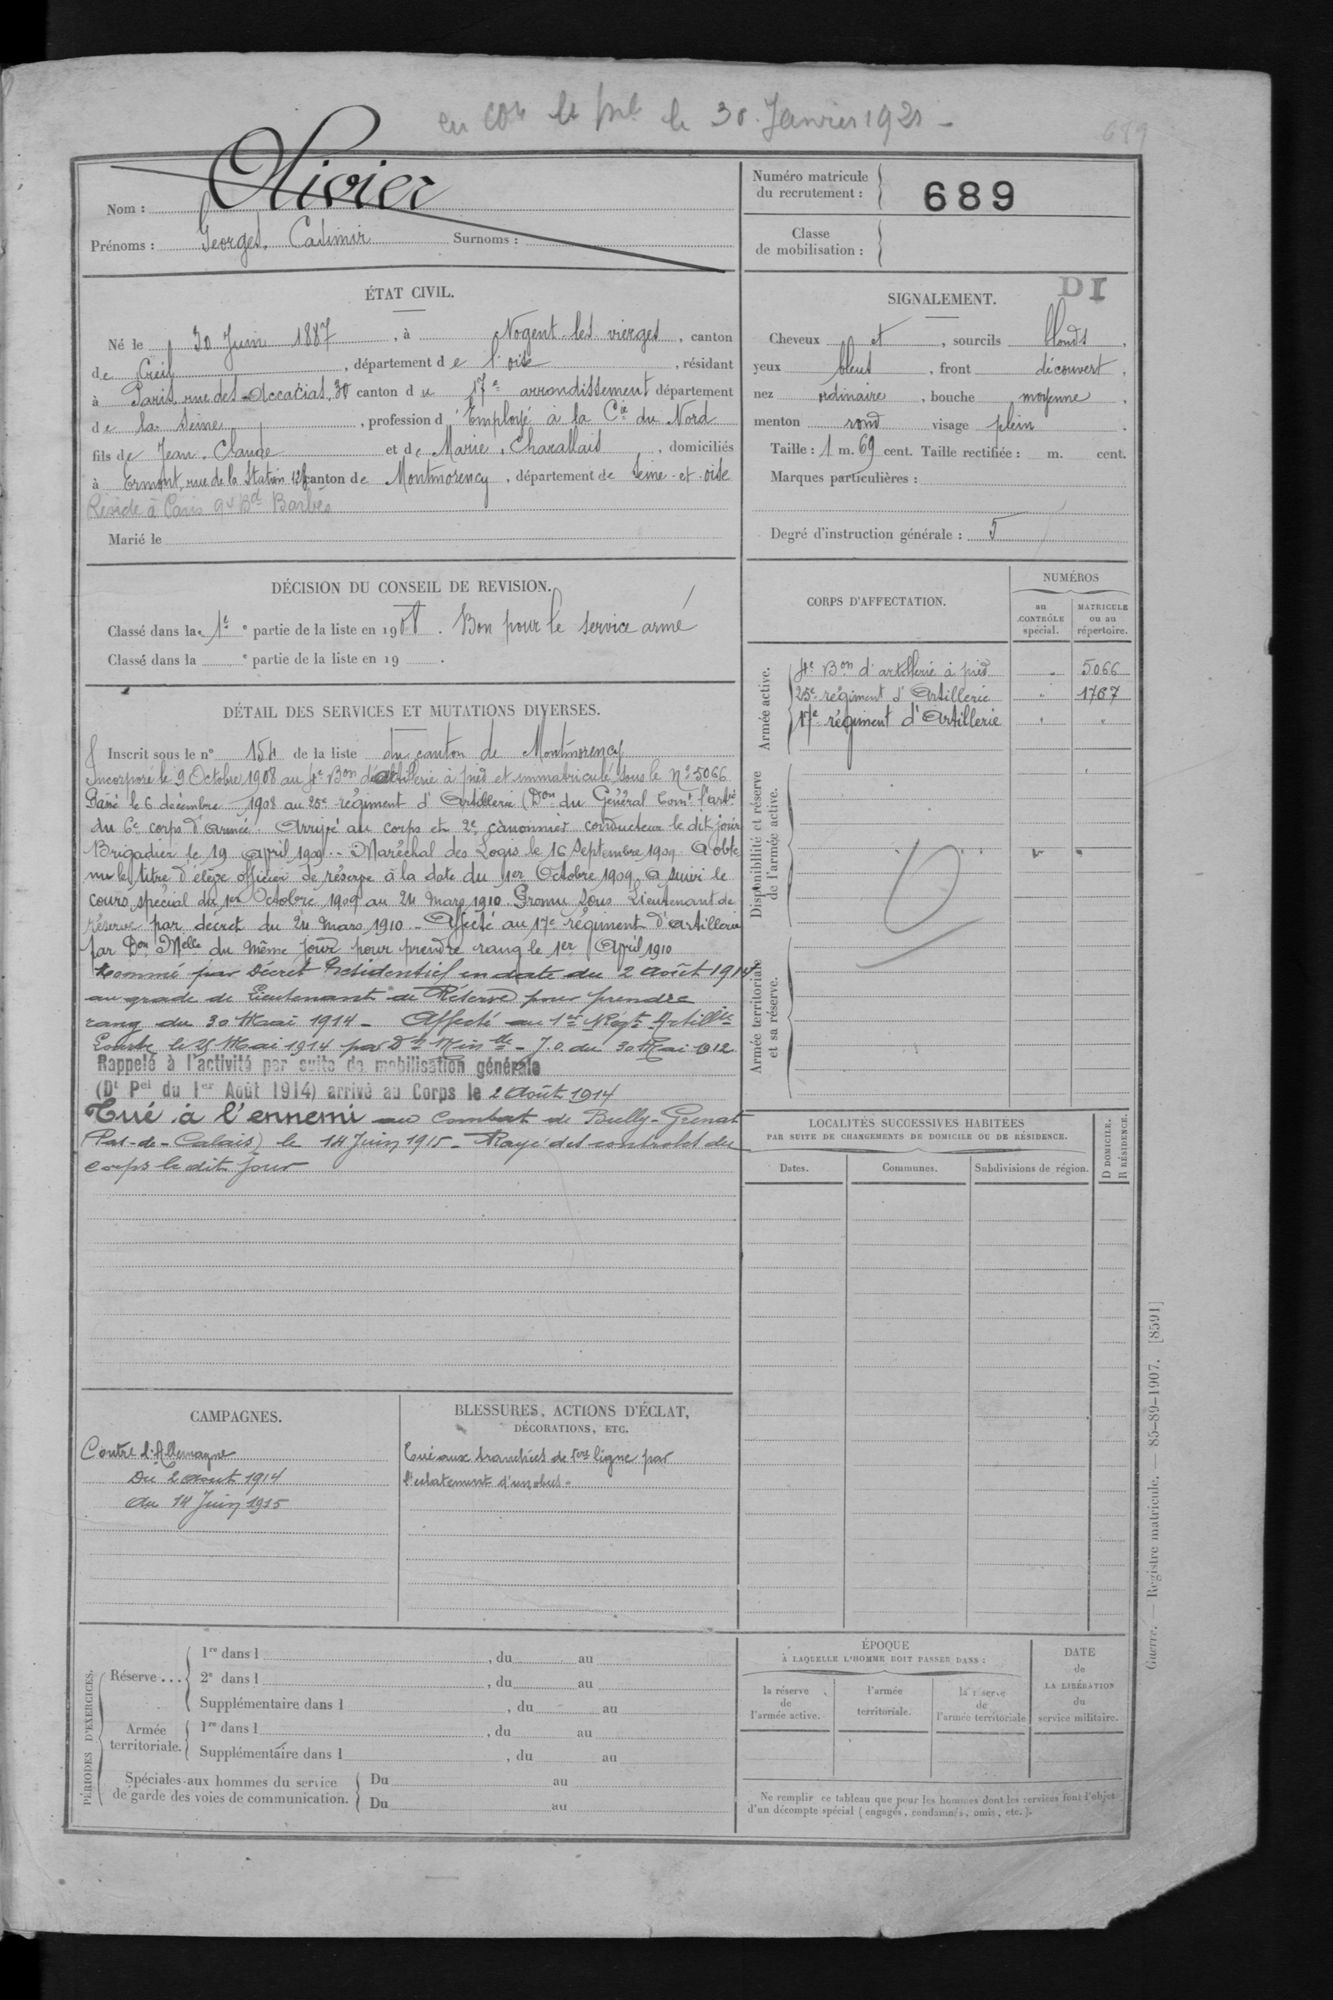 le 30 Janvier 1921 -
689
Nom : Olivier
Prénoms : Georges, Casimir Surnoms :
Numéro matricule
du recrutement : 689
Classe
de mobilisation :
ÉTAT CIVIL.
Né le 30 Juin 1887, à Nogent les vierges, canton
de Creil, département de l'oise, résidant
à Paris, rue des Accacias, 30 canton du 17e arrondissement département
de la Seine, profession d'Employé à la Cie du Nord
fils de Jean, Claude et de Marie, Charallais, domiciliés
à Ermont, rue de la Station canton de Montmorency, département de Seine-et-oise
Réside à Paris Bd Barbès
Marié le
DI
SIGNALEMENT.
Cheveux et, sourcils blonds,
yeux bleus, front découvert,
nez ordinaire, bouche moyenne,
menton rond visage plein.
Taille : 1 m. 69 cent. Taille rectifiée : m. cent.
Marques particulières :
Degré d'instruction générale : 5
DÉCISION DU CONSEIL DE REVISION.
Classé dans la 1e partie de la liste en 1908. Bon pour le service armé
Classé dans la e partie de la liste en 19 .
DÉTAIL DES SERVICES ET MUTATIONS DIVERSES.
Inscrit sous le n° 154 de la liste du canton de Montmorency
Incorporé le 9 Octobre 1908 au 4e Bon d'artillerie à pied et immatriculé sous le No 5066
Passé le 6 décembre 1908 au 25e régiment d'Artillerie (Don du Général Comt l'artie
du 6e corps d'armée. Arrivé au corps et 2e canonnier conducteur le dit jour
Brigadier le 19 Avril 1909.- Maréchal des Logis le 16 Septembre 1909 A obte
nu le titre d'élève officier de réserve à la date du 1er Octobre 1909. A suivi le
cours spécial du 1er Octobre 1909 au 24 mars 1910. Promu Sous Lieutenant de
réserve par décret du 24 mars 1910.- Affecté au 17e régiment d'Artillerie
par Don Melle du même jour pour prendre rang le 1er Avril 1910
Nommé par Décret Présidentiel en date du 2 Août 1914
au grade de Lieutenant de Réserve pour prendre
rang du 30 Mai 1914 - Affecté au 1er Régt Artillie
Lourde le Mai 1914 par don Minlle - J.O. du 30 Mai 1912
Rappelé à l'activité par suite de mobilisation générale
(Dt Pel du 1er Août 1914) arrivé au Corps le 2 Août 1914
Tué à l'ennemi au combat de Bully-Grenat
(Pas-de-Calais) le 14 Juin 1915 - Rayé des controles du
corps le dit jour
CORPS D'AFFECTATION.
NUMÉROS
au
CONTRÔLE
spécial.
MATRICULE
ou au
répertoire.
Armée active.
4e Bon d'artillerie à pied " 5066
25e régiment d'Artillerie " 1767
17e régiment d'Artillerie " "
Disponibilité et réserve
de l'armée active.
Armée territoriale
et sa réserve.
LOCALITÉS SUCCESSIVES HABITÉES
PAR SUITE DE CHANGEMENTS DE DOMICILE OU DE RÉSIDENCE.
Dates. Communes. Subdivisions de région.
D DOMICILE.
R RÉSIDENCE.
CAMPAGNES.
Contre l'Allemagne
Du 2 Aout 1914
Au 14 Juin 1915
BLESSURES, ACTIONS D'ÉCLAT,
DÉCORATIONS, ETC.
Tué aux tranchées de 1ère ligne par
l'éclatement d'un obus -
PÉRIODES D'EXERCICES.
Réserve ...
1re dans l , du au
2e dans l , du au
Supplémentaire dans l , du au
Armée
territoriale.
1re dans l , du au
Supplémentaire dans l , du au
Spéciales aux hommes du service
de garde des voies de communication.
Du au
Du au
ÉPOQUE
À LAQUELLE L'HOMME DOIT PASSER DANS :
la réserve
de
l'armée active.
l'armée
territoriale.
la réserve
de
l'armée territoriale
DATE
de
LA LIBÉRATION
du
service militaire.
Ne remplir ce tableau que pour les hommes dont les services font l'objet
d'un décompte spécial (engagés, condamnés, omis, etc.).
Guerre. — Registre matricule. — 85-89-1907. [8591]